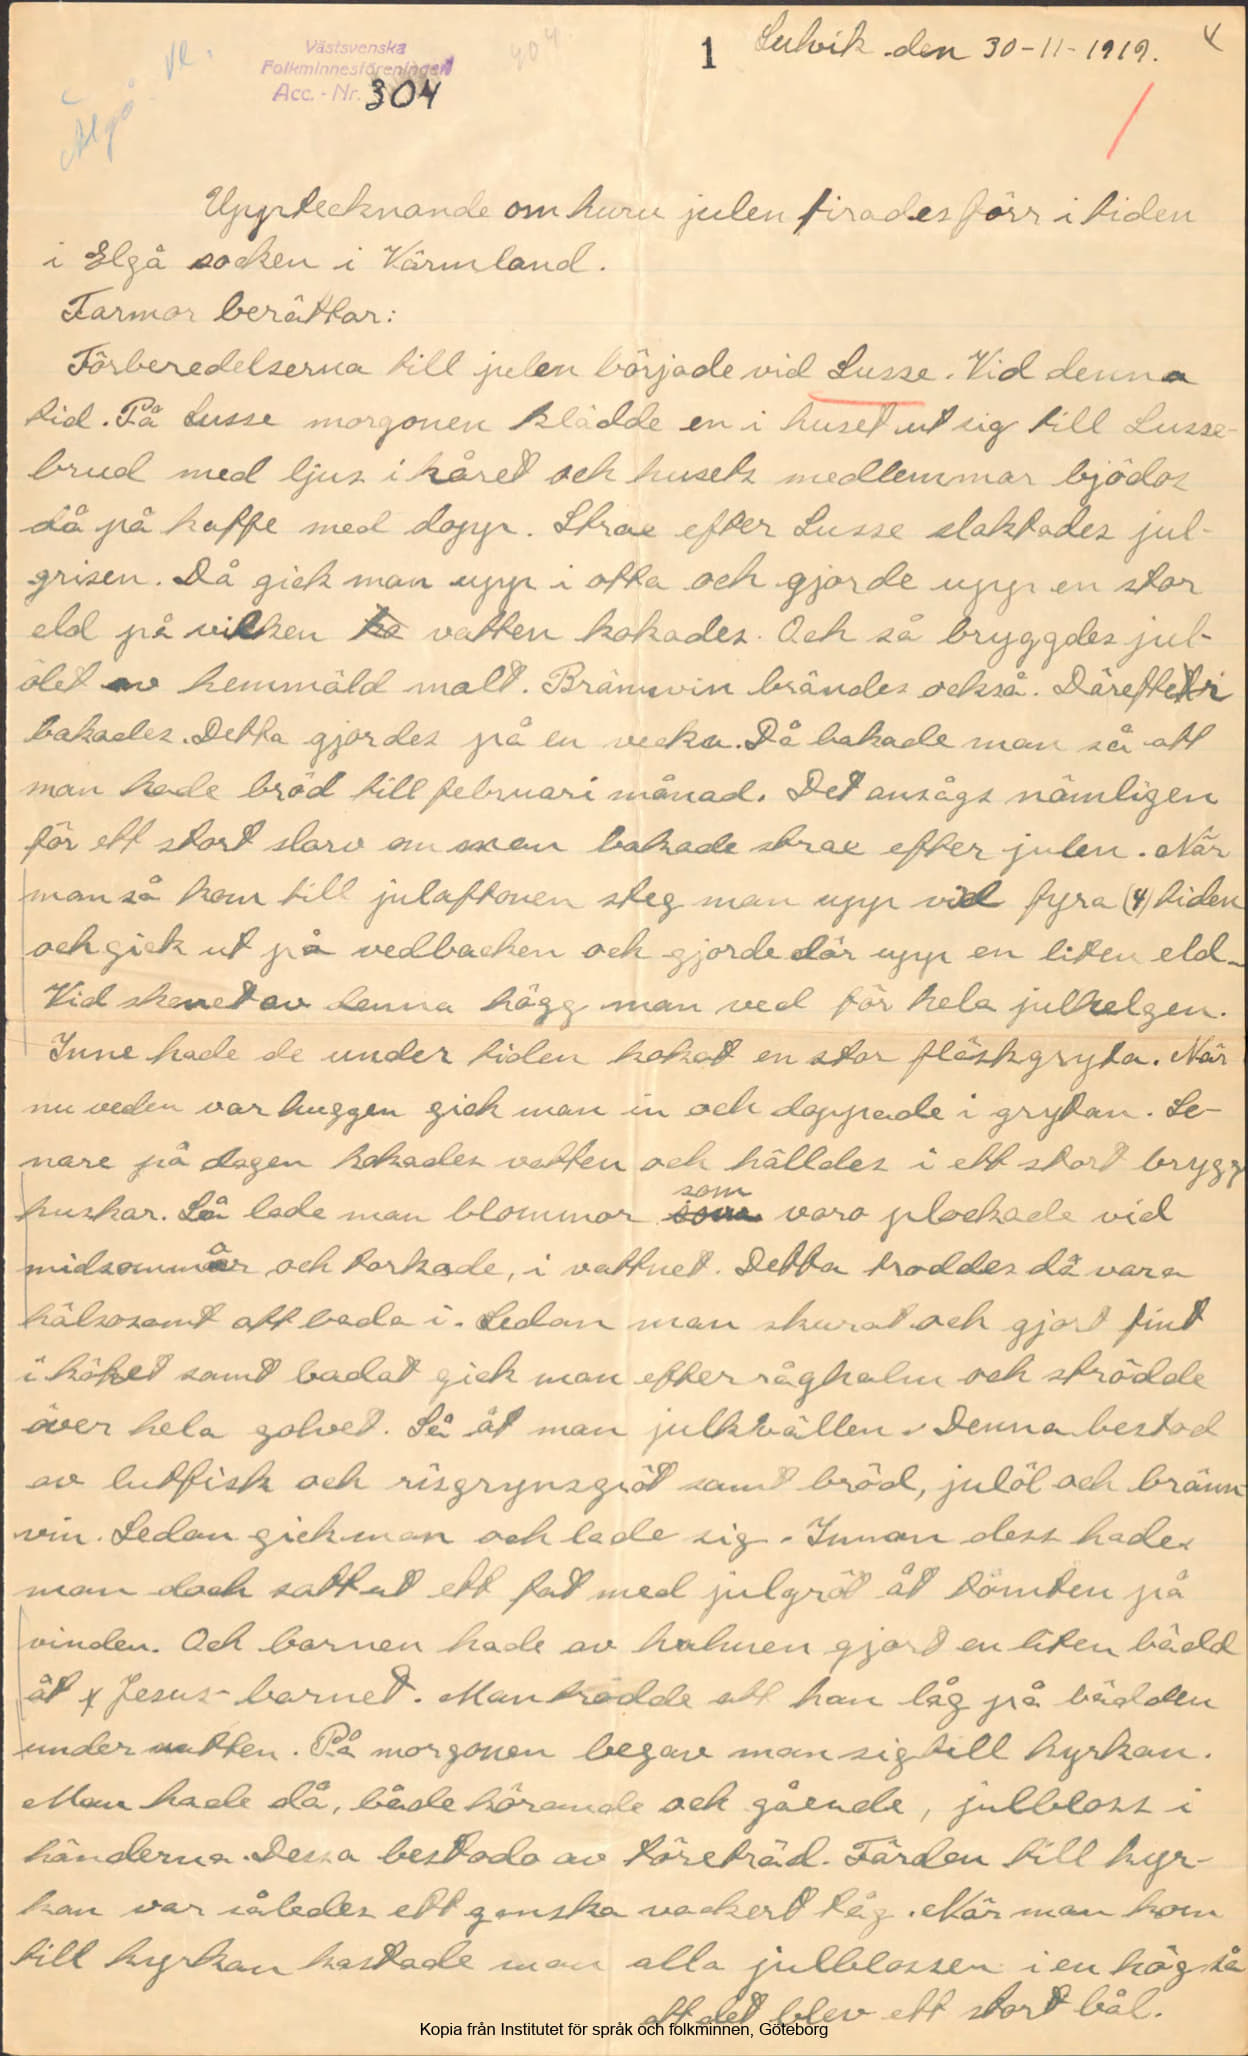 Västsvenska
Folkminnesföreningen
Acc.-Nr. 304
404.
Älgå Vr.
1
Sulvik den 30-11-1919.
Upptecknande om huru julen firades förr i tiden
i Elgå socken i Värmland.
Farmor berättar:
Förberedelserna till julen började vid Lusse. Vid denna
tid. På Lusse morgonen klädde en i huset ut sig till Lusse-
brud med ljus i håret och husets medlemmar bjödos
då på kaffe med dopp. Strax efter Lusse slaktades jul-
grisen. Då gick man upp i otta och gjorde upp en stor
eld på vilken ko vatten kokades. Och så bryggdes jul-
ölet av hemmäld malt. Brännvin brändes också. Därefter
bakades. Detta gjordes på en vecka. Då bakade man så att
man hade bröd till februari månad. Det ansågs nämligen
för ett stort slarv om man bakade strax efter julen. När
man så kom till julaftonen steg man upp vid fyra (4) tiden
och gick ut på vedbacken och gjorde där upp en liten eld.
Vid skenet av denna högg man ved för hela julhelgen.
Inne hade de under tiden kokat en stor fläskgryta. När
nu veden var huggen gick man in och doppade i grytan. Se-
nare på dagen kokades vatten och hälldes i ett stort brygg
huskar. Så lade man blommor som som voro plockade vid
midsommar och torkade, i vattnet. Detta troddes då vara
hälsosamt att bada i. Sedan man skurat och gjort fint
i köket samt badat gick man efter råghalm och strödde
över hela golvet. Så åt man julkvällen. Denna bestod
av lutfisk och risgrynsgröt samt bröd, julöl och bränn-
vin. Sedan gick man och lade sig. Innan dess hades
man dock satt ut ett fat med julgröt åt tomten på
vinden. Och barnen hade av halmen gjort en liten bädd
åt Jesus-barnet. Man trodde att han låg på bädden
under natten. På morgonen begav man sig till kyrkan.
Man hade då, både körande och gående, julbloss i
händerna. Dessa bestodo av töreträd. Färden till kyr-
kan var således ett ganska vackert tåg. När man kom
till kyrkan kastade man alla julblossen i en hög så
att det blev ett stort bål.
Kopia från Institutet för språk och folkminnen, Göteborg